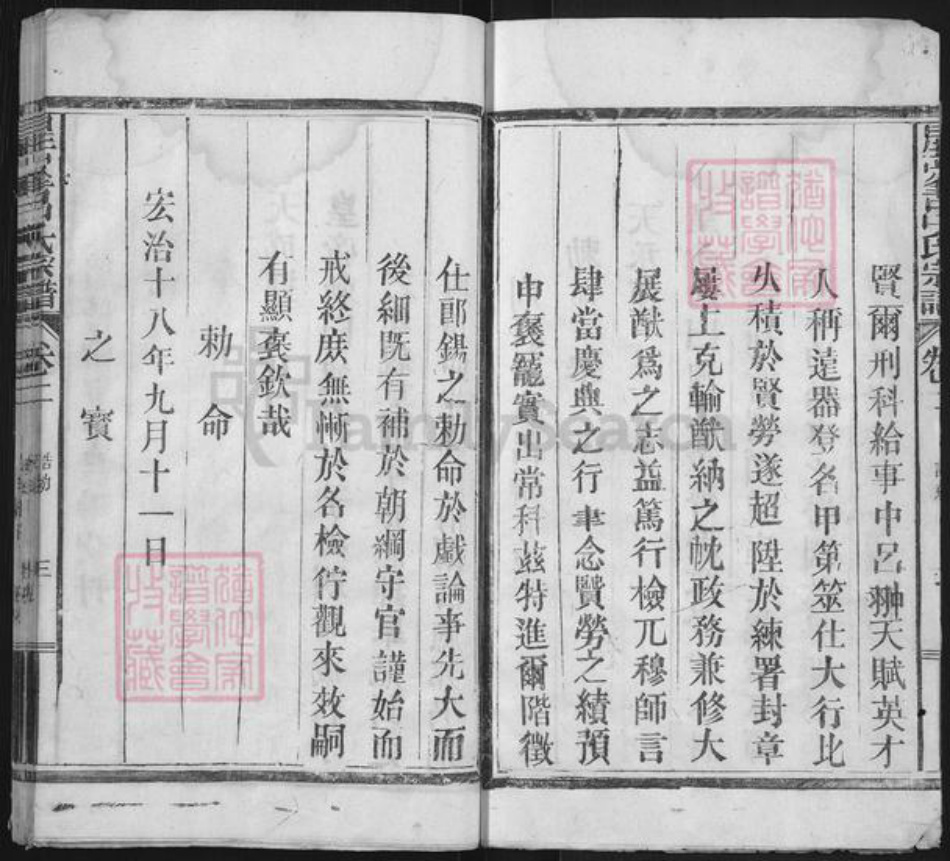 賢爾刑科給事中呂翀天賦英才
人稱遠器登名甲第筮仕大行比
久積於賢勞遂超陞於練署封章
屢上克輸猷納之忱政務兼修大
展猷為之志益篤行檢兀穆師言
肆當慶典之行聿念賢勞之績預
申褒寵實出常科茲特進爾階徵
仕郎錫之勅命於戲論事先大而
後細既有補於朝綱守官謹始而
戒終庶無慚於名檢佇觀來效嗣
有顯褒欽哉
勅命
宏治十八年九月十一日
之寶
呂氏宗譜 卷二 誥勅 三
FamilySearch